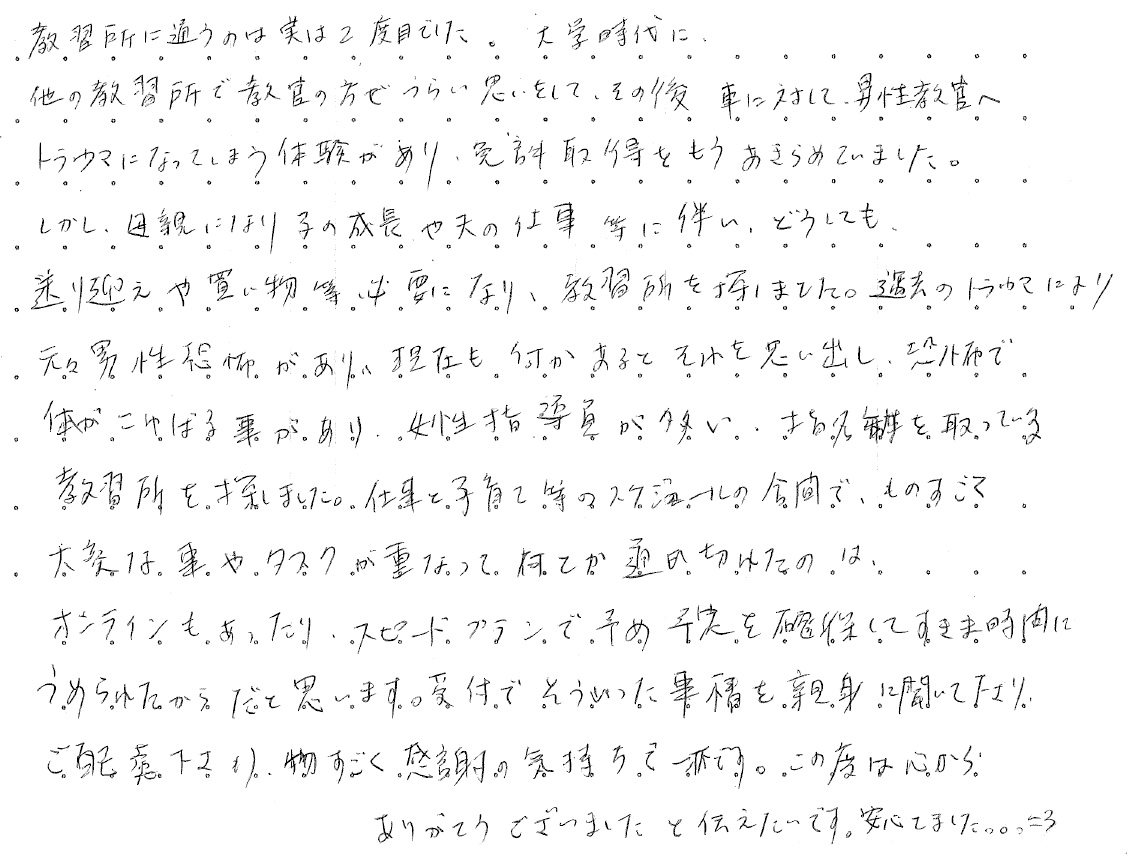 教習所に通うのは実は2度目でした。大学時代に、
他の教習所で教官の方でつらい思いをして、その後 車に対して、男性教官へ
トラウマになってしまう体験があり、免許取得をもうあきらめていました。
しかし、母親になり子の成長や夫の仕事等に伴い、どうしても、
送り迎えや買い物等必要になり、教習所を探しました。過去のトラウマにより
元々男性恐怖があり、現在も何かあるとそれを思い出し、恐怖で
体がこわばる事があり、女性指導員が多い、指名制を取っている
教習所を探しました。仕事と子育て等のスケジュールの合間で、ものすごく
大変な事やタスクが重なって、何とか通い切れたのは、
オンラインもあったり、スピードプランで予め予定を確保してすきま時間に
うめられたからだと思います。受付でそういった事情を親身に聞いて下さり、
ご配慮下さり、物すごく感謝の気持ちで一杯です。この度は心から
ありがとうございましたと伝えたいです。安心てました。。。=3